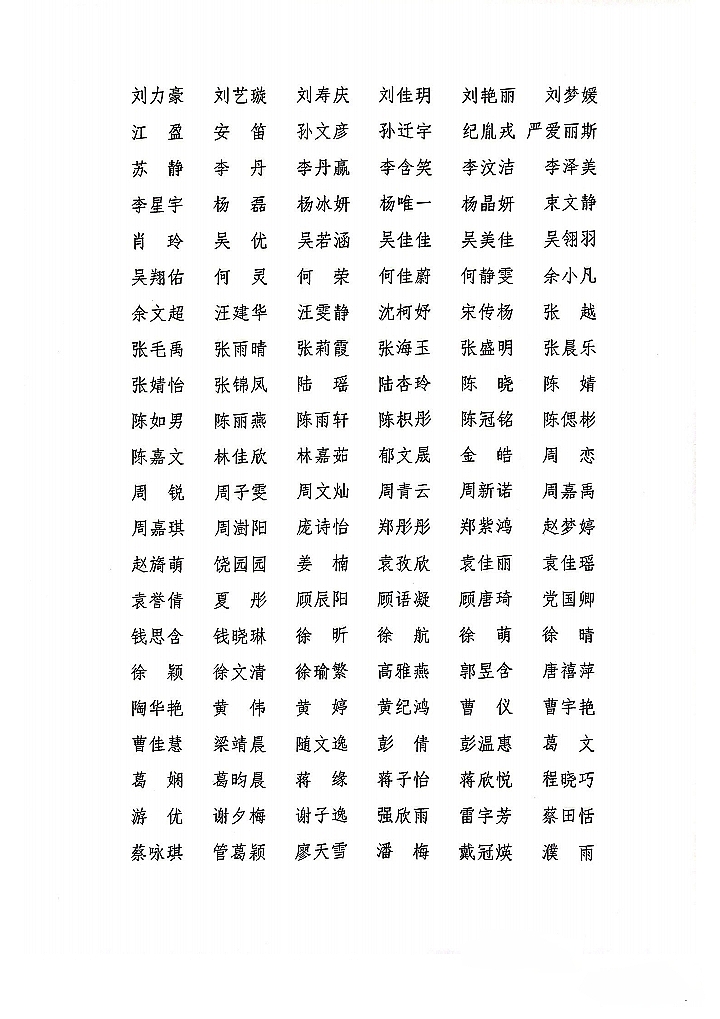 刘力豪 刘艺璇 刘寿庆 刘佳玥 刘艳丽 刘梦媛
江 盈 安 笛 孙文彦 孙迁宇 纪胤戎 严爱丽斯
苏 静 李 丹 李丹赢 李含笑 李汶洁 李泽美
李星宇 杨 磊 杨冰妍 杨唯一 杨晶妍 束文静
肖 玲 吴 优 吴若涵 吴佳佳 吴美佳 吴翎羽
吴翔佑 何 灵 何 荣 何佳蔚 何静雯 余小凡
余文超 汪建华 汪雯静 沈柯妤 宋传杨 张 越
张毛禹 张雨晴 张莉霞 张海玉 张盛明 张晨乐
张婧怡 张锦凤 陆 瑶 陆杏玲 陈 晓 陈 婧
陈如男 陈丽燕 陈雨轩 陈枳彤 陈冠铭 陈偲彬
陈嘉文 林佳欣 林嘉茹 郁文晟 金 皓 周 恋
周 锐 周子雯 周文灿 周青云 周新诺 周嘉禹
周嘉琪 周澍阳 庞诗怡 郑彤彤 郑紫鸿 赵梦婷
赵旖萌 饶园园 姜 楠 袁孜欣 袁佳丽 袁佳瑶
袁誉倩 夏 彤 顾辰阳 顾语凝 顾唐琦 党国卿
钱思含 钱晓琳 徐 昕 徐 航 徐 萌 徐 晴
徐 颖 徐文清 徐瑜繁 高雅燕 郭昱含 唐禧萍
陶华艳 黄 伟 黄 婷 黄纪鸿 曹 仪 曹宇艳
曹佳慧 梁靖晨 随文逸 彭 倩 彭温惠 葛 文
葛 娴 葛昀晨 蒋 缘 蒋子怡 蒋欣悦 程晓巧
游 优 谢夕梅 谢子逸 强欣雨 雷宇芳 蔡田恬
蔡咏琪 管葛颖 廖天雪 潘 梅 戴冠煐 濮 雨